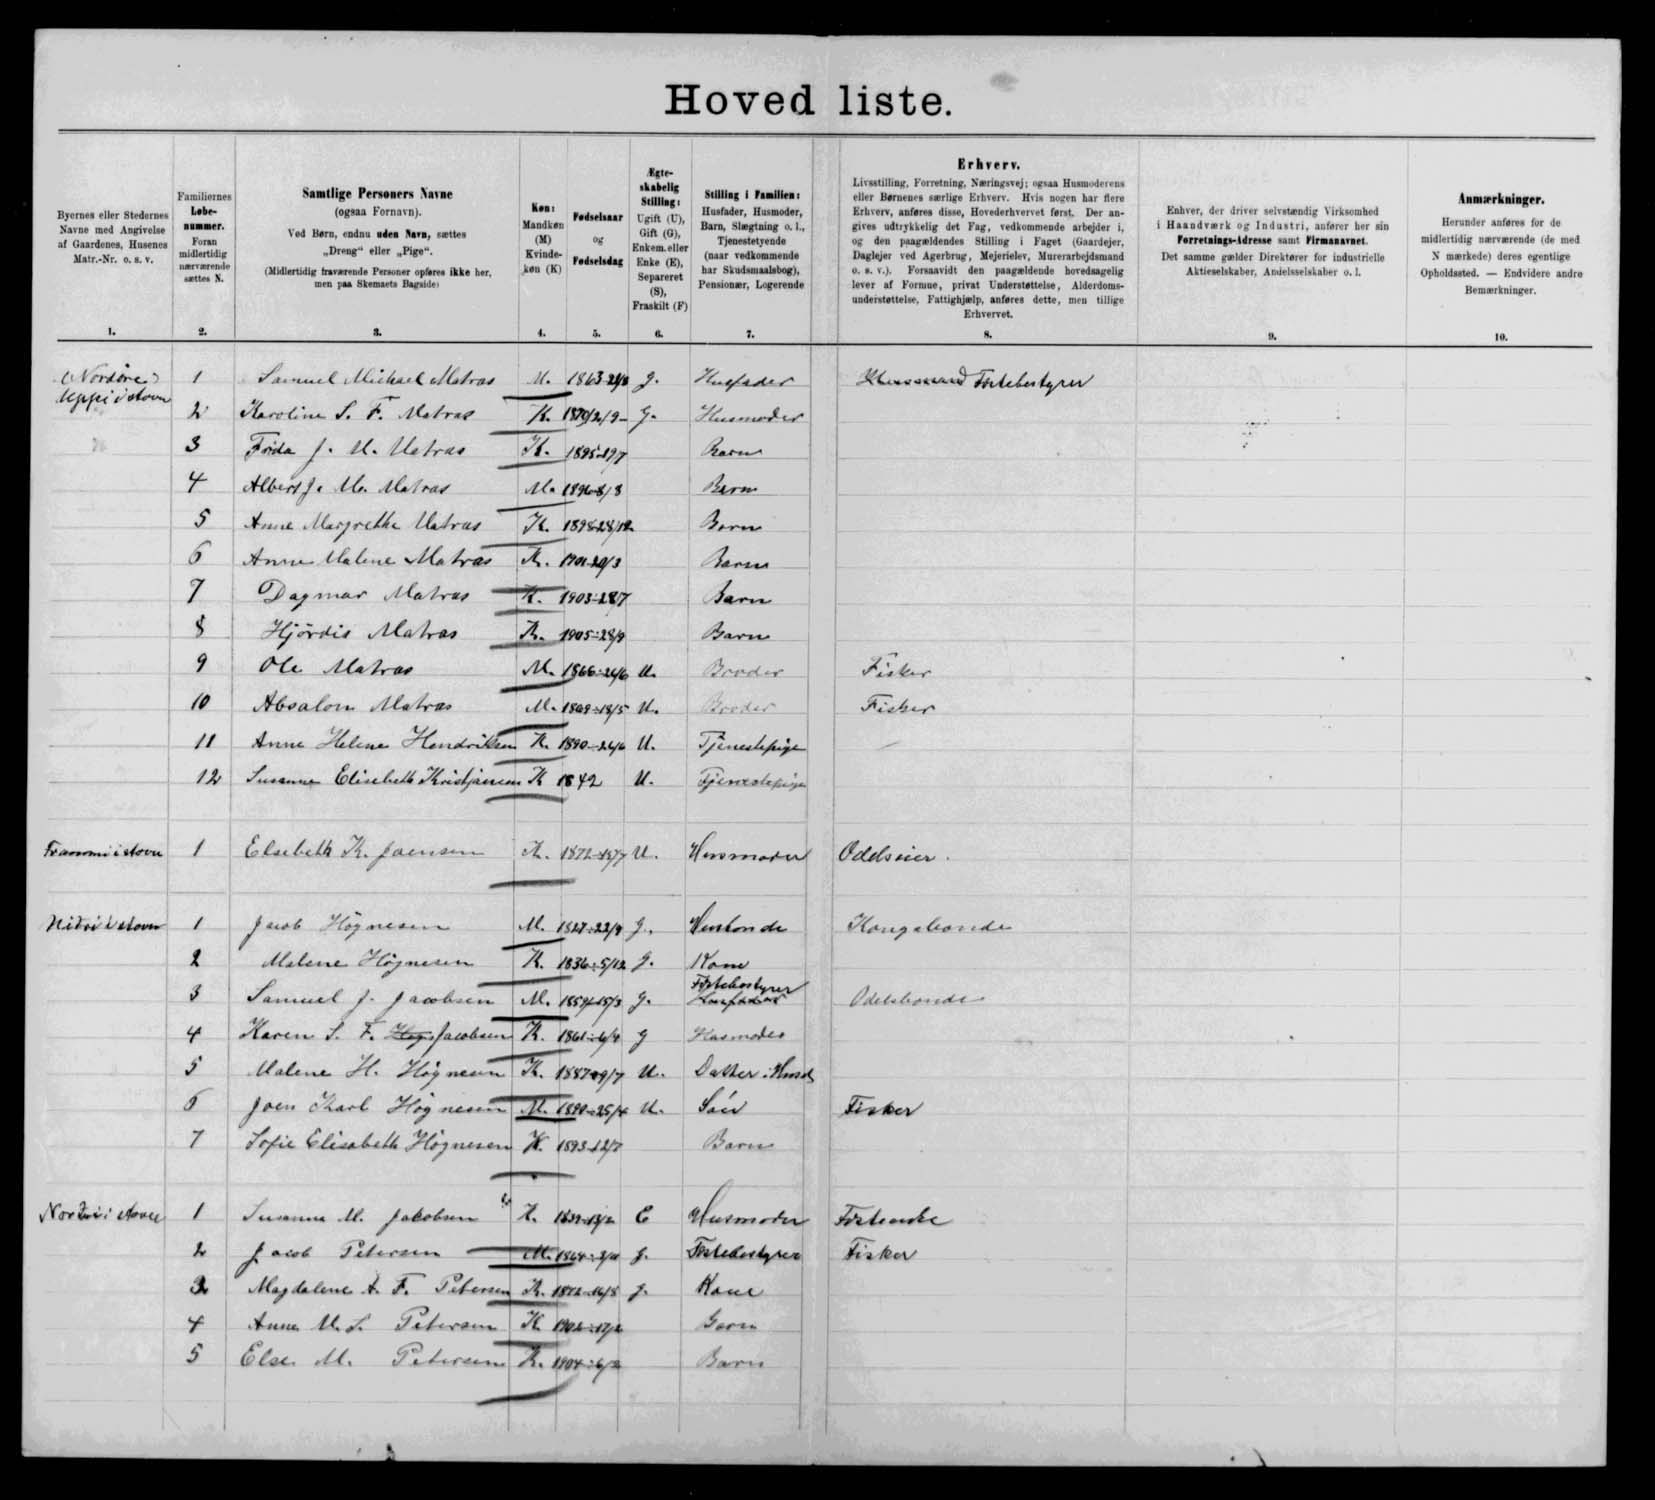 Hoved liste.
Byernes eller Stedernes
Navne med Angivelse
af Gaardenes, Husenes
Matr.-Nr. o. s. v.
1.
Familiernes
Løbe-
nummer.
Foran
midlertidig
nærværende
sættes N.
2.
Samtlige Personers Navne
(ogsaa Fornavn).
Ved Børn, endnu uden Navn, sættes
„Dreng“ eller „Pige“.
(Midlertidig fraværende Personer opføres ikke her,
men paa Skemaets Bagside)
3.
Køn:
Mandkøn
(M)
Kvinde-
køn (K)
4.
Fødselsaar
og
Fødselsdag
5.
Ægte-
skabelig
Stilling:
Ugift (U),
Gift (G),
Enkem. eller
Enke (E),
Separeret
(S),
Fraskilt (F)
6.
Stilling i Familien:
Husfader, Husmoder,
Barn, Slægtning o. l.,
Tjenestetyende
(naar vedkommende
har Skudsmaalsbog),
Pensionær, Logerende
7.
Erhverv.
Livsstilling, Forretning, Næringsvej; ogsaa Husmoderens
eller Børnenes særlige Erhverv. Hvis nogen har flere
Erhverv, anføres disse, Hovederhvervet først. Der an-
gives udtrykkelig det Fag, vedkommende arbejder i,
og den paagældendes Stilling i Faget (Gaardejer,
Daglejer ved Agerbrug, Mejerielev, Murerarbejdsmand
o. s. v.). Forsaavidt den paagældende hovedsagelig
lever af Formue, privat Understøttelse, Alderdoms-
understøttelse, Fattighjælp, anføres dette, men tillige
Erhvervet.
8.
Enhver, der driver selvstændig Virksomhed
i Haandværk og Industri, anfører her sin
Forretnings-Adresse samt Firmanavnet.
Det samme gælder Direktører for industrielle
Aktieselskaber, Andelsselskaber o. l.
9.
Anmærkninger.
Herunder anføres for de
midlertidig nærværende (de med
N mærkede) deres egentlige
Opholdssted. — Endvidere andre
Bemærkninger.
10.
(Nordøre) 1 Samuel Michael Matras M. 1863 g. Husfader Festebestyrer
Uppi i stovu
2 Karoline S. F. Matras K. g. Husmoder
3 Frida J. M. Matras K. 1895-19/7 Barn
4 Albert J. M. Matras M. 1896-8/8 Barn
5 Anne Margrethe Matras K. 1898-28/12 Barn
6 Anne Malene Matras K. 1901-20/3 Barn
7 Dagmar Matras K. 1903-28/7 Barn
8 Hjördis Matras K. 1905-28/9 Barn
9 Ole Matras M. 1866-24/6 U. Broder Fisker
10 Absalon Matras M. 1869-18/5 U. Broder Fisker
11 Anne Helene Hendriksen K. 1890-24/6 U. Tjenestepige
12 Susanne Elisebeth Kristjansen K 1842 U. Tjenestepige
Frammi i stovu 1 Elsebeth K. Joensen K. 1872-15/7 U. Husmoder Odelseier.
Nidri i stovu 1 Jacob Högnesen M. 1827-22/9 g. Husbonde Kongsbonde
2 Malene Högnesen K. 1836-5/12 g. Kone
Festebestyrer
3 Samuel J. Jacobsen M. 1859-15/3 g. Husfader Odelsbonde
4 Karen S. F. Jacobsen K. 1861-6/4 g Husmoder
5 Malene H. Högnesen K. 1887-9/7 U. Datter i Huset
6 Joen Karl Högnesen M. 1890-25/4 U. Sön Fisker
7 Sofie Elisabeth Högnesen K. 1893-12/7 Barn
Nordri i stovu 1 Susanne M. Jakobsen K. 1839-13/2 E Husmoder Festeenke
2 Jacob Petersen M. 1864 g. Festebestyrer Fisker
3 Magdalene A. F. Petersen K. 1872-16/8 g. Kone
4 Anne M. S. Petersen K 1902-17/2 Barn
5 Else M. Petersen K. 1904-6/2 Barn